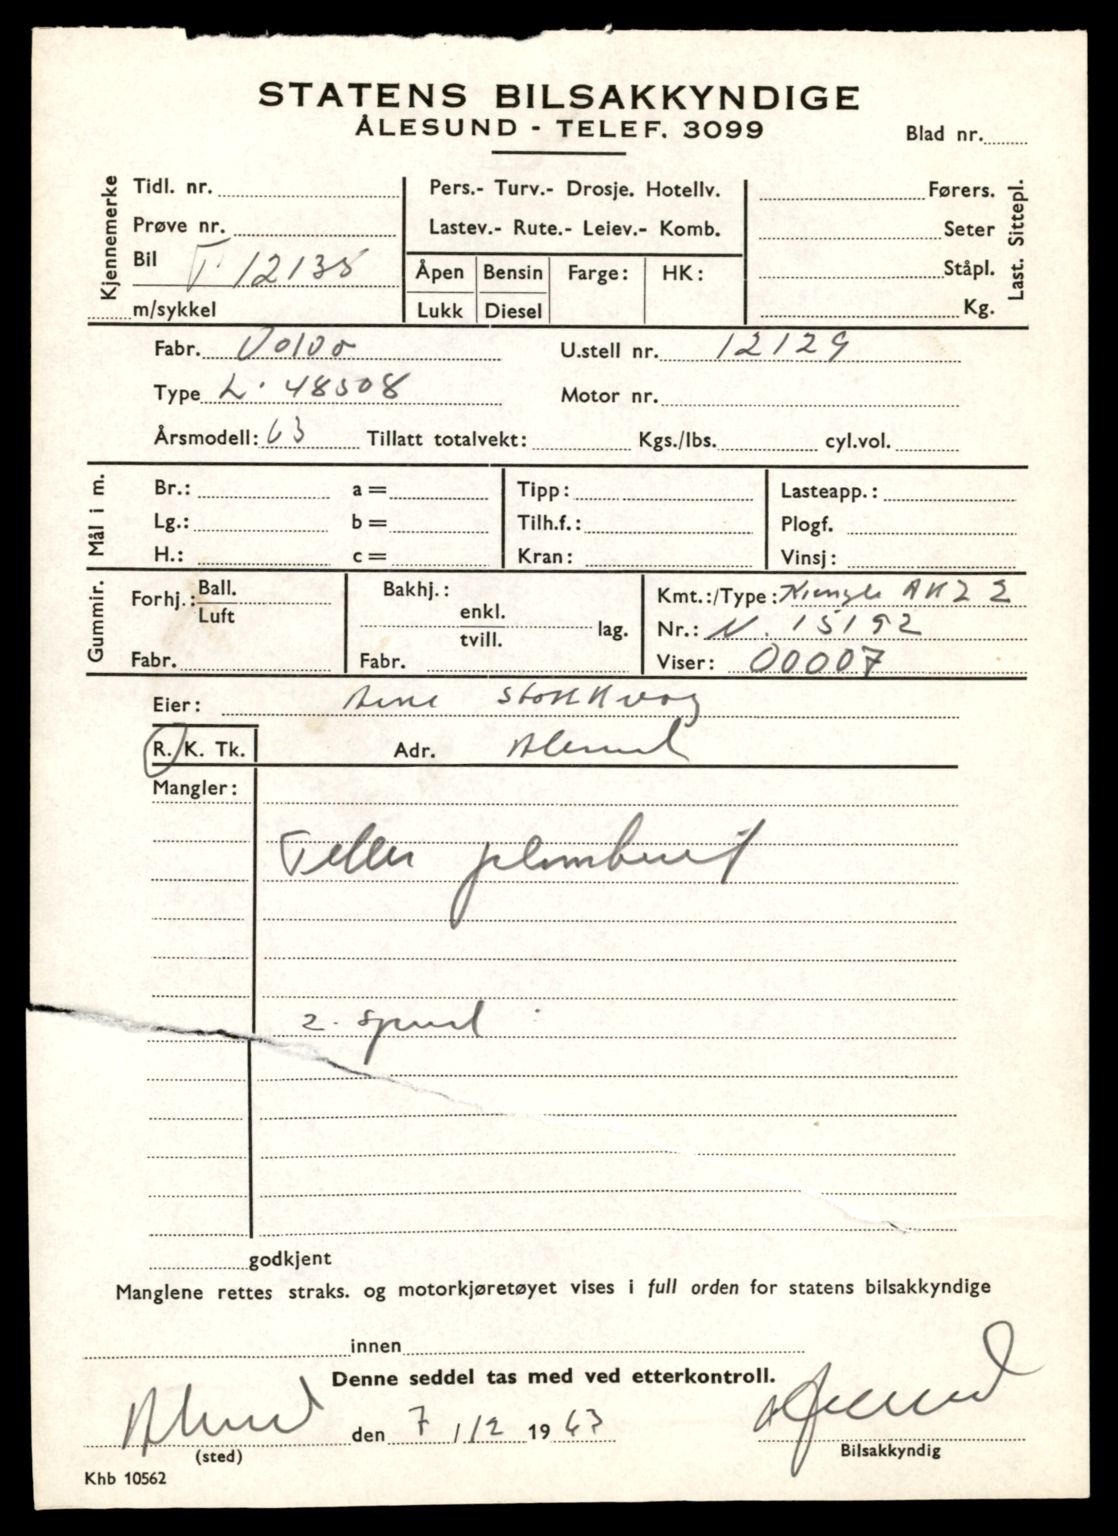 STATENS BILSAKKYNDIGE
ÅLESUND - TELEF. 3099
Blad nr.
Kjennemerke
Tidl. nr.
Prøve nr.
Bil T 12135
m/sykkel
Pers.- Turv.- Drosje. Hotellv.
Lastev.- Rute.- Leiev.- Komb.
Åpen Bensin Farge: HK:
Lukk Diesel
Førers.
Seter
Ståpl.
Kg.
Last. Sittepl.
Fabr. Volvo U.stell nr. 12129
Type L. 48508 Motor nr.
Årsmodell: 63 Tillatt totalvekt: Kgs./lbs. cyl.vol.
Mål i m.
Br.: a = Tipp: Lasteapp.:
Lg.: b = Tilh.f.: Plogf.
H.: c = Kran: Vinsj:
Gummir.
Forhj.: Ball.
Luft
Fabr.
Bakhj.:
enkl.
tvill. lag.
Fabr.
Kmt.:/Type: Kienzle
Nr.: N. 15192
Viser: 00007
Eier: Arne Stokkvog
R. K. Tk. Adr. Ålesund
Mangler:
Teller plombert
2. spind
godkjent
Manglene rettes straks. og motorkjøretøyet vises i full orden for statens bilsakkyndige
innen
Denne seddel tas med ved etterkontroll.
Ålesund den 7/12 1963
(sted)
Bilsakkyndig
Khb 10562